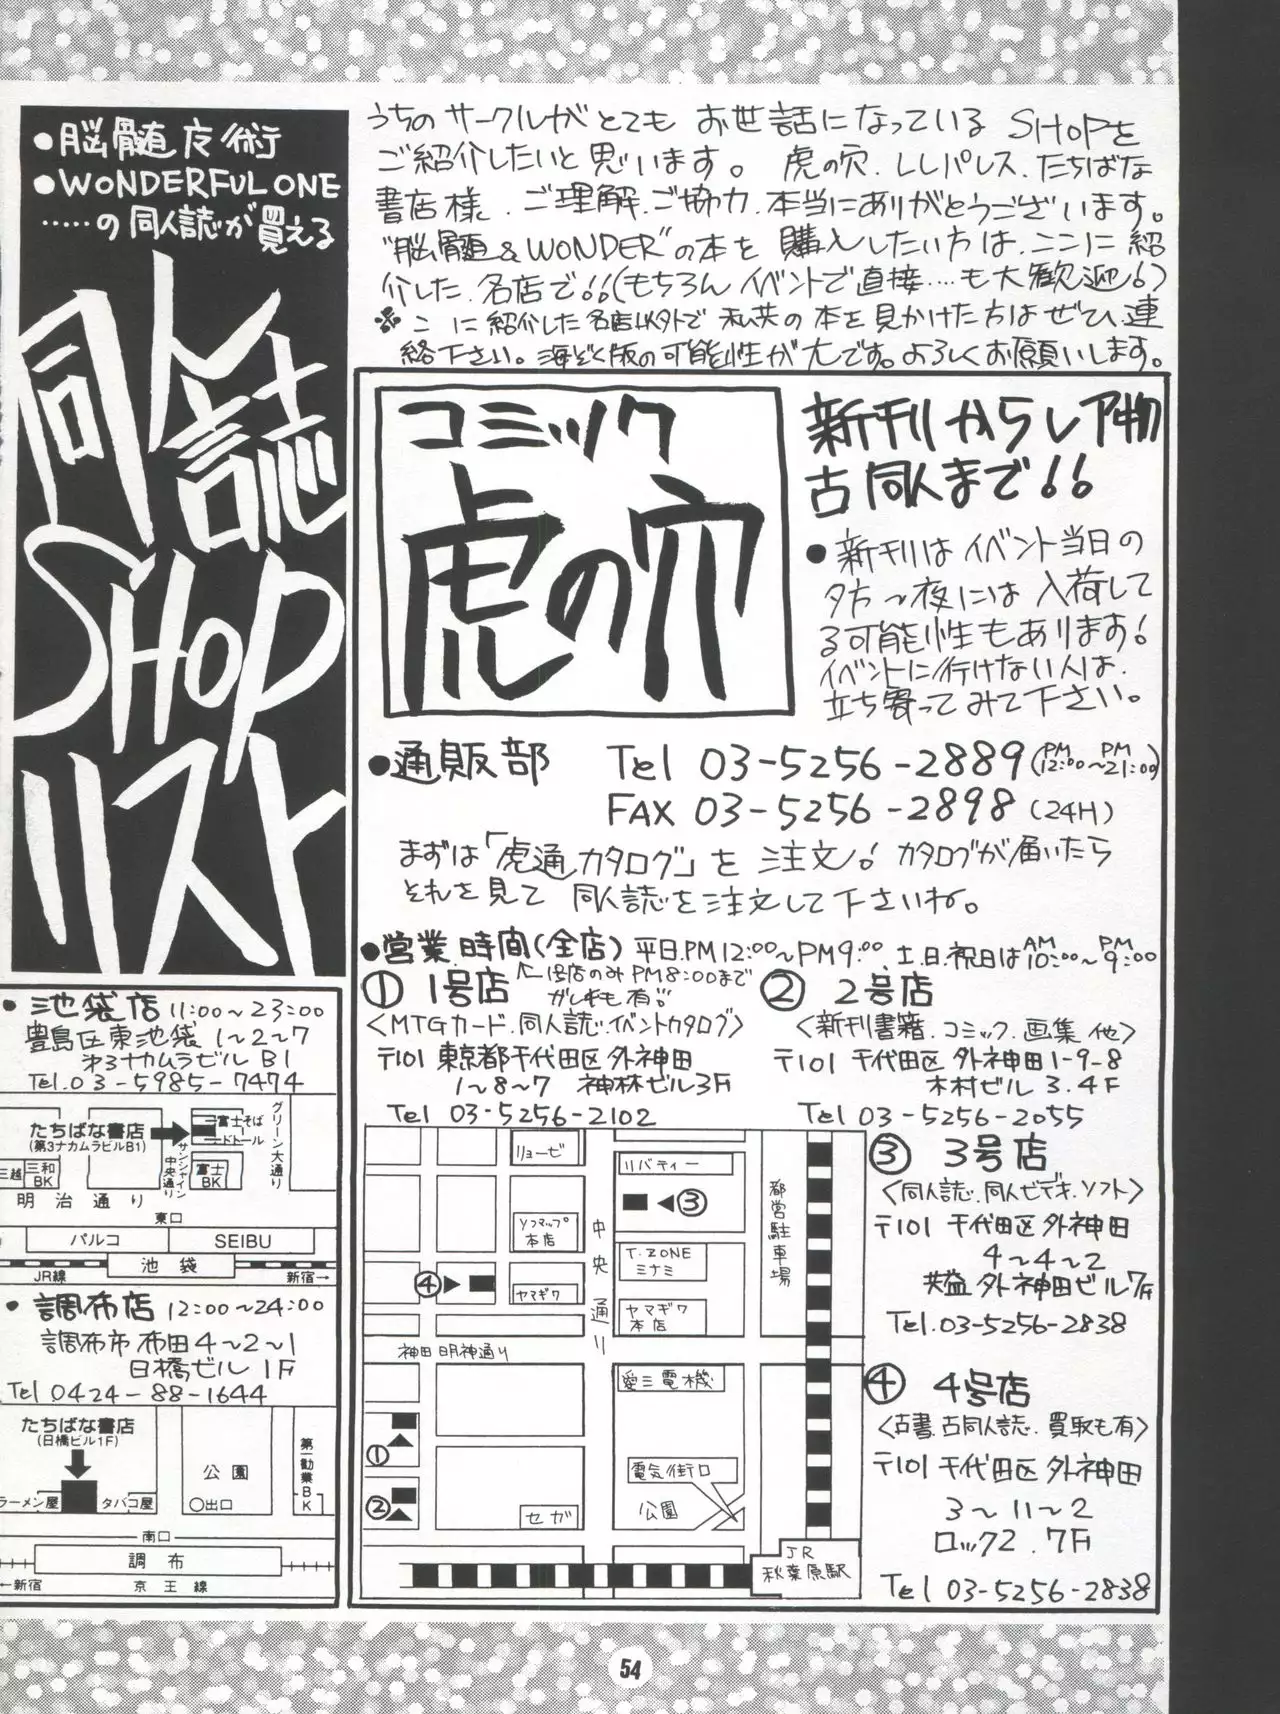 ●脳髄度術
●WONDERFUL ONE
……の同人誌が買える
同人誌
SHOP
リスト
うちのサークルがとてもお世話になっているSHOPを
ご紹介したいと思います。虎の穴.LLパレス.たちばな
書店様.ご理解.ご協力.本当にありがとうございます。
"脳髄&WONDER"の本を購入したい方は.ここに紹
介した.名店で!!(もちろんイベントで直接….も大歓迎!)
※ここに紹介した名店以外で私共の本を見かけた方はぜひ連
絡下さい。海ぞく版の可能性が大です。よろしくお願いします。
コミック
虎の穴
新刊からレア物
古同人まで!!
●新刊はイベント当日の
夕方～夜には入荷して
る可能性もあります!
イベントに行けない人は.
立ち寄ってみて下さい。
●通販部 Tel 03-5256-2889(PM12:00～PM21:00)
FAX 03-5256-2898(24H)
まずは「虎通カタログ」を注文!カタログが届いたら
それを見て同人誌を注文して下さいね。
●営業.時間(全店)平日.PM12:00～PM9:00.土.日.祝日はAM10:00～PM9:00
① 1号店
1号店のみPM8:00まで
〈MTGカード.同人誌.イベントカタログ〉
〒101 東京都千代田区外神田
1～8～7 神林ビル3F
Tel 03-5256-2102
② 2号店
〈新刊書籍.コミック.画集他〉
〒101 千代田区外神田1-9-8
木村ビル 3.4F
Tel 03-5256-2055
③ 3号店
〈同人誌.同人ビデオ.ソフト〉
〒101 千代田区外神田
4～4～2
共益外神田ビル7F
Tel.03-5256-2838
④ 4号店
〈古書.古同人誌.買取も有〉
〒101 千代田区外神田
3～11～2
ロック2.7F
Tel 03-5256-2838
リョービ
リバティー
③
ソフマップ
本店
T.ZONE
ミナミ
④
ヤマギワ
ヤマギワ
本店
中央通り
都営駐車場
神田明神通り
愛三電機
①
②
電気街口
公園
セガ
JR
秋葉原駅
●池袋店 11:00～23:00
豊島区東池袋1～2～7
第3ナカムラビルB1
Tel.03-5985-7474
たちばな書店
(第3ナカムラビルB1)
富士そば
ドトール
グリーン大通り
サンシャイン
中央通り
三越
三和
BK
富士
BK
明治通り
東口
パルコ
SEIBU
池袋
JR線
新宿→
●調布店 12:00～24:00
調布市布田4～2～1
日橋ビル1F
Tel 0424-88-1644
たちばな書店
(日橋ビル1F)
ラーメン屋
タバコ屋
公園
○出口
第一勧業BK
南口
調布
←新宿
京王線
54